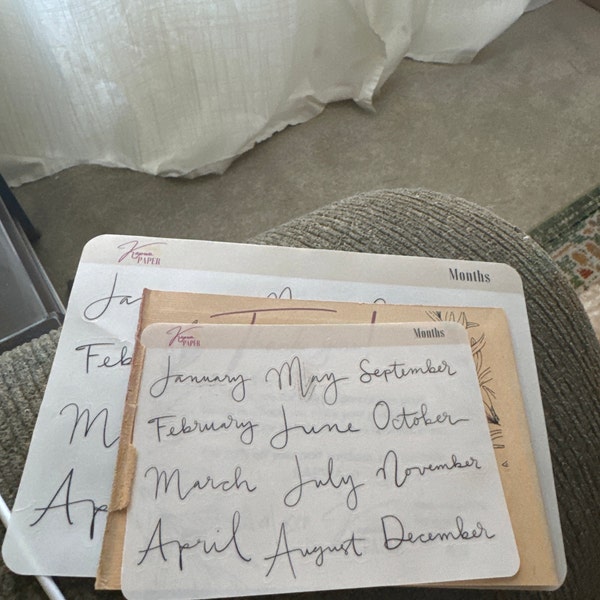 PAPER
Months
Ja
Feb
M
Ap
PAPER
Months
January May September
February June October
March July November
April August December